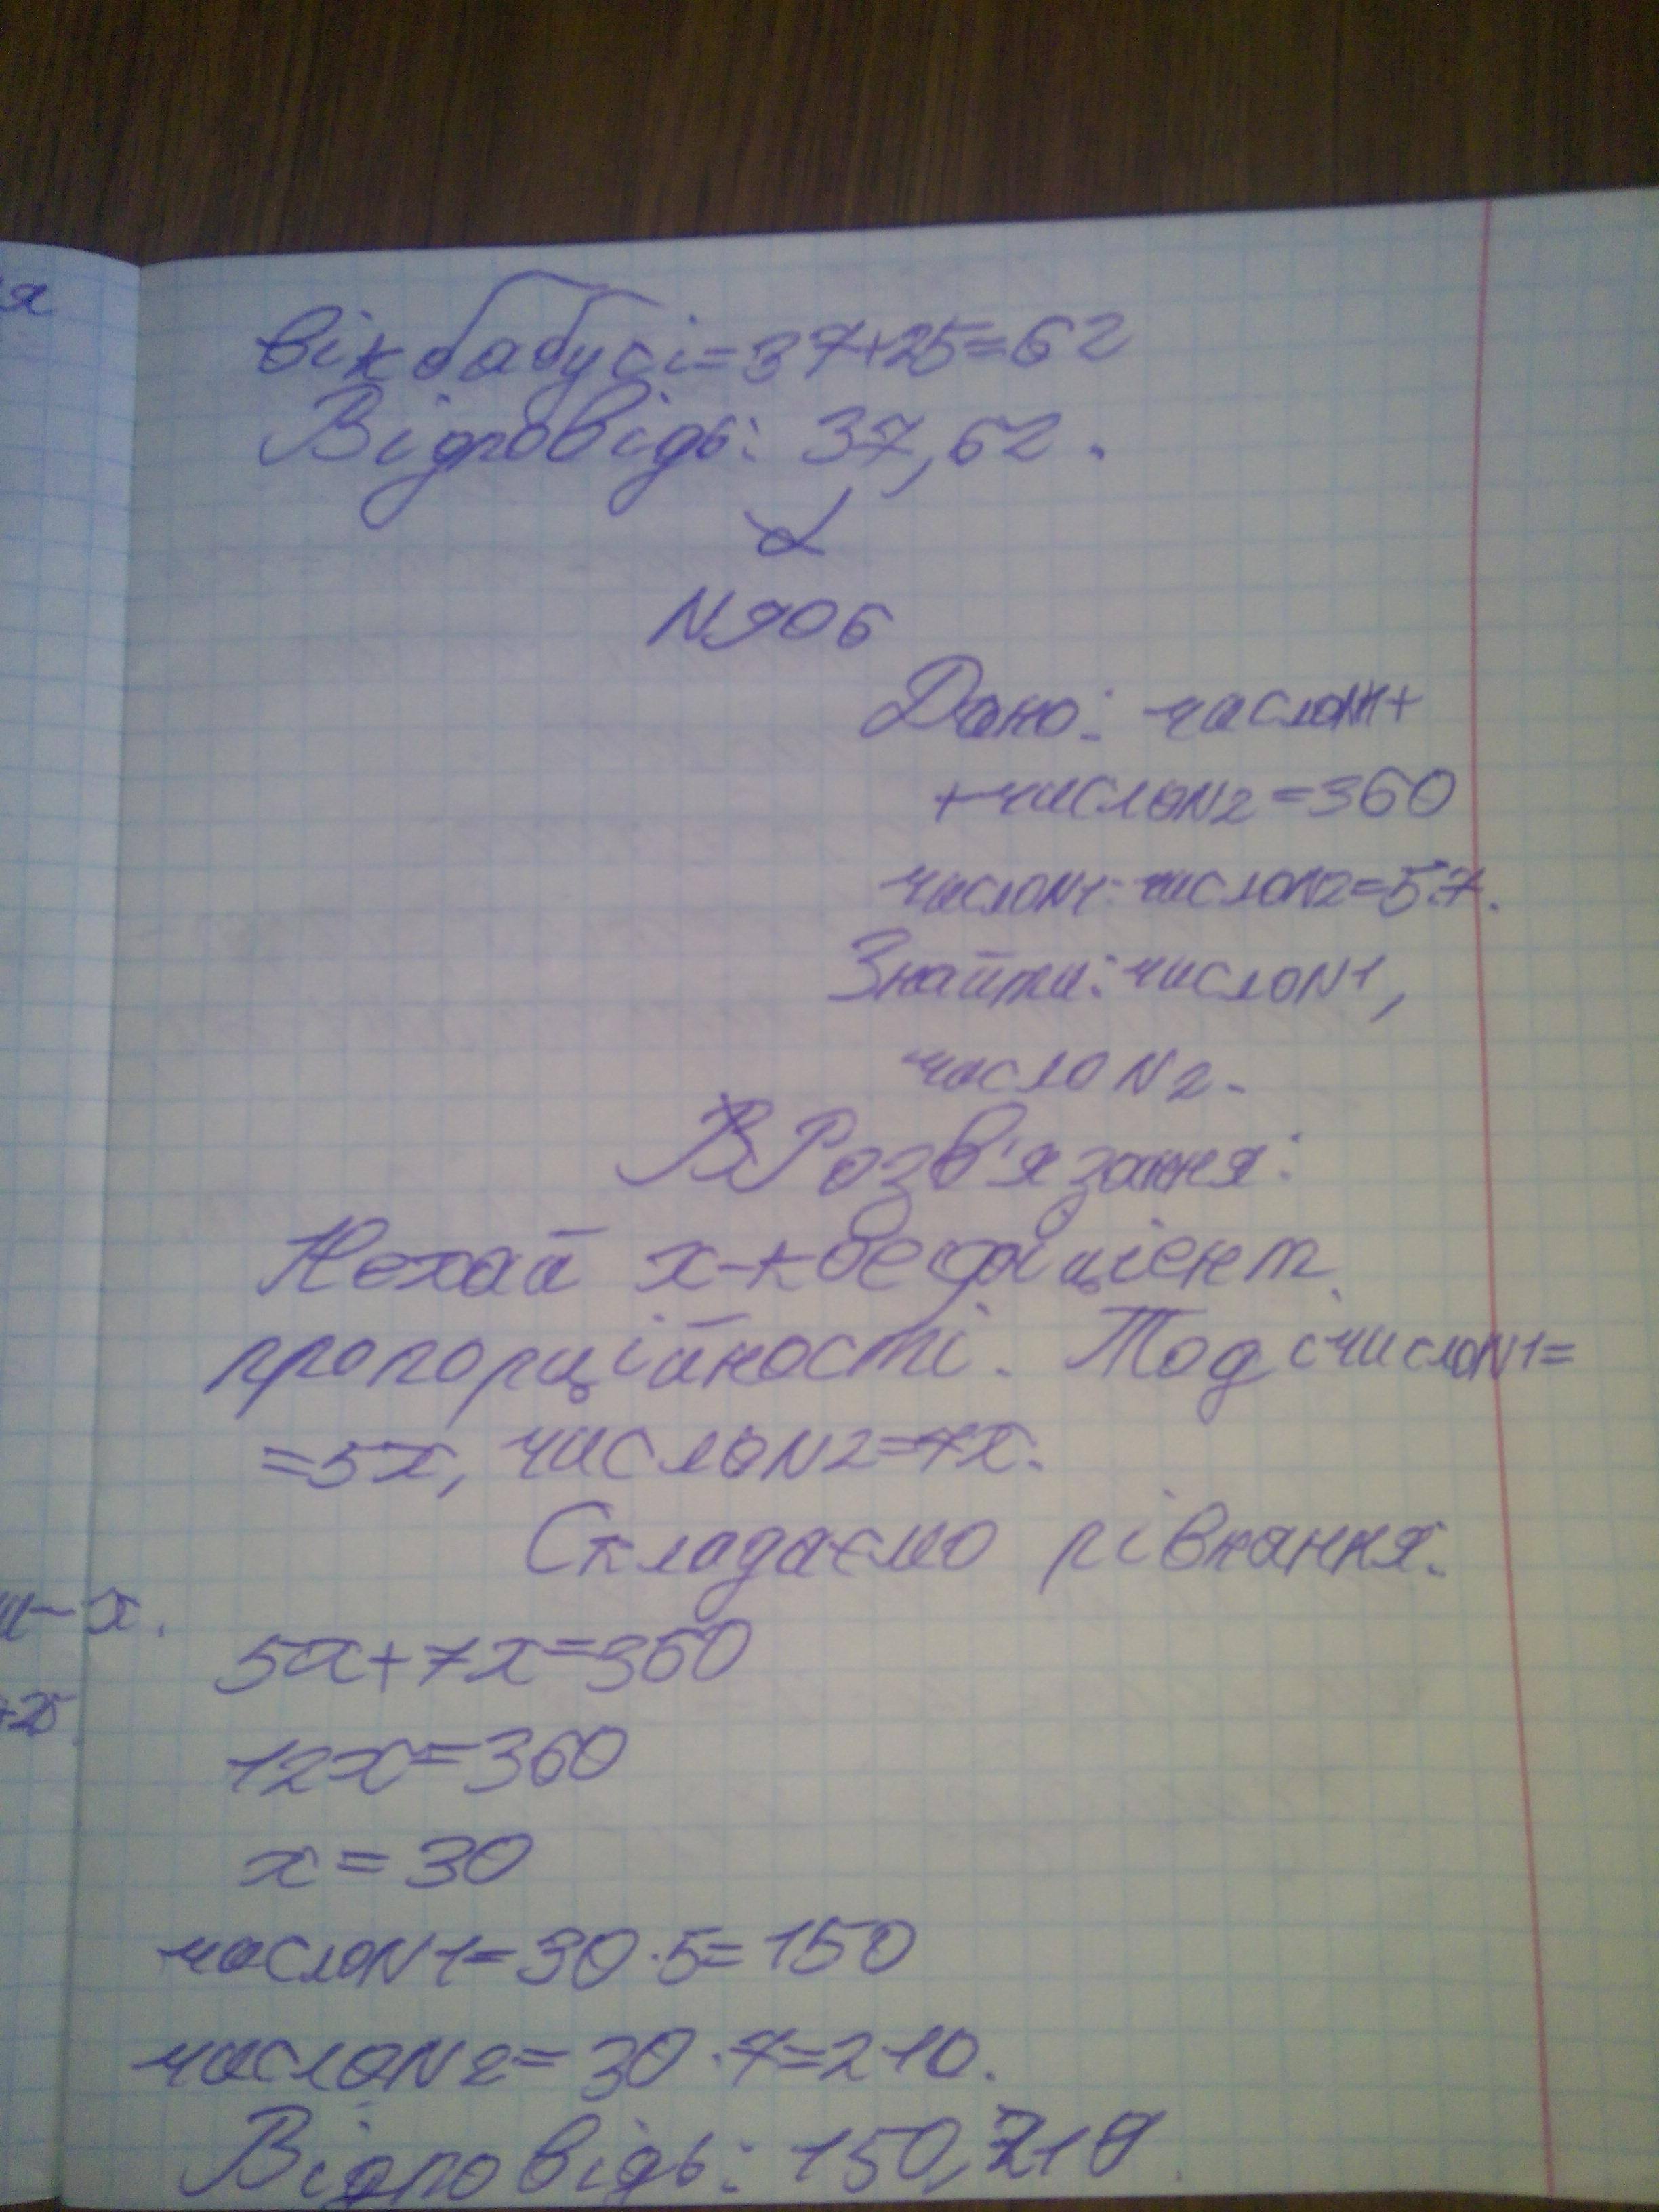 я
вік бабусі=37+25=62
Відповідь: 37,62.
N906
Дано: число N1+
+число N2=360
число N1:число N2=5:7.
Знайти: число N1,
число N2.
Розв'язання:
Нехай х-коефіцієнт
пропорційності. Тоді число N1=
=5х, число N2=7х.
Складаємо рівняння:
и-х.
5х+7х=360
+25
12х=360
х=30
число N1=30·5=150
число N2=30·7=210.
Відповідь: 150,210.